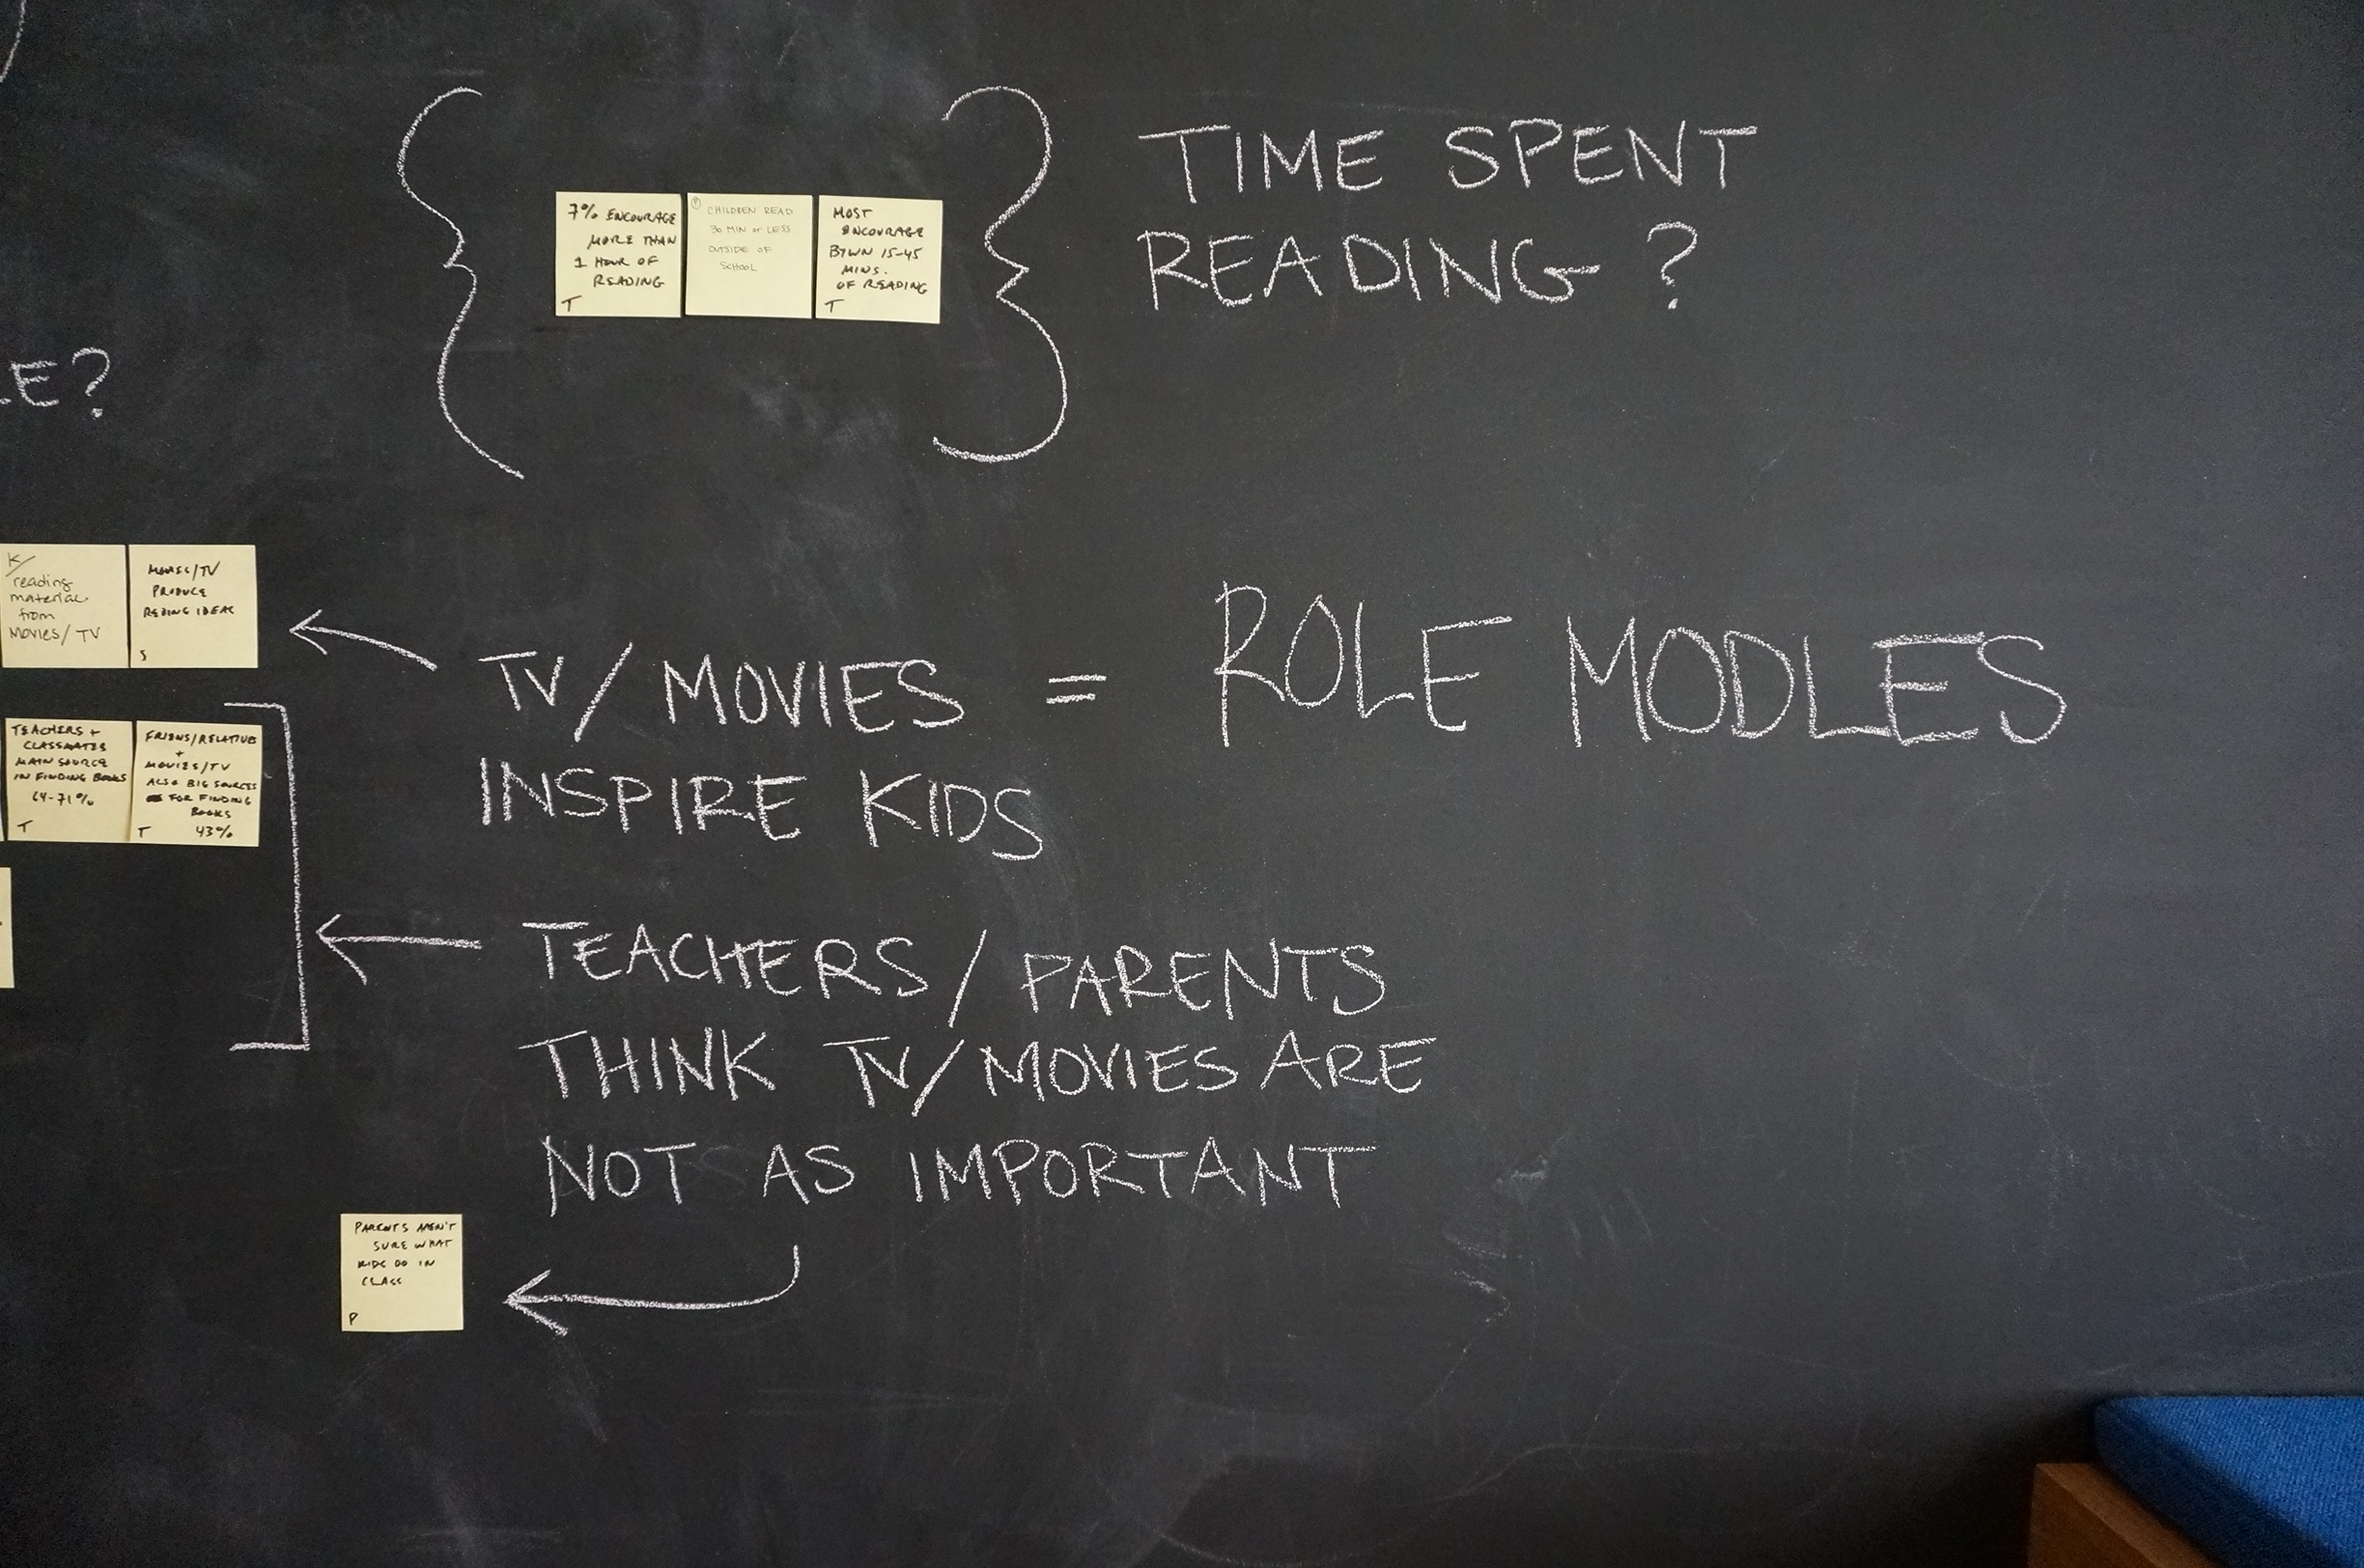 TIME SPENT
READING ?
7% ENCOURAGE
MORE THAN
1 HOUR OF
READING
T
P
CHILDREN READ
30 MIN or LESS
OUTSIDE OF
SCHOOL
MOST
ENCOURAGE
BTWN 15-45
MINS.
OF READING
T
E?
K/
reading
material
from
Movies/ TV
MOVIES/TV
PRODUCE
REDING IDEAS
S
TV/ MOVIES = ROLE MODLES
INSPIRE KIDS
TEACHERS +
CLASSMATES
MAIN SOURCE
IN FINDING BOOKS
64-71%
T
FRIENS/RELATIVES
+
MOVIES/TV
ALSO BIG SOURCES
FOR FINDING
BOOKS
T 43%
TEACHERS / PARENTS
THINK TV/MOVIES ARE
NOT AS IMPORTANT
PARENTS AREN'T
SURE WHAT
KIDS DO IN
CLASS
P